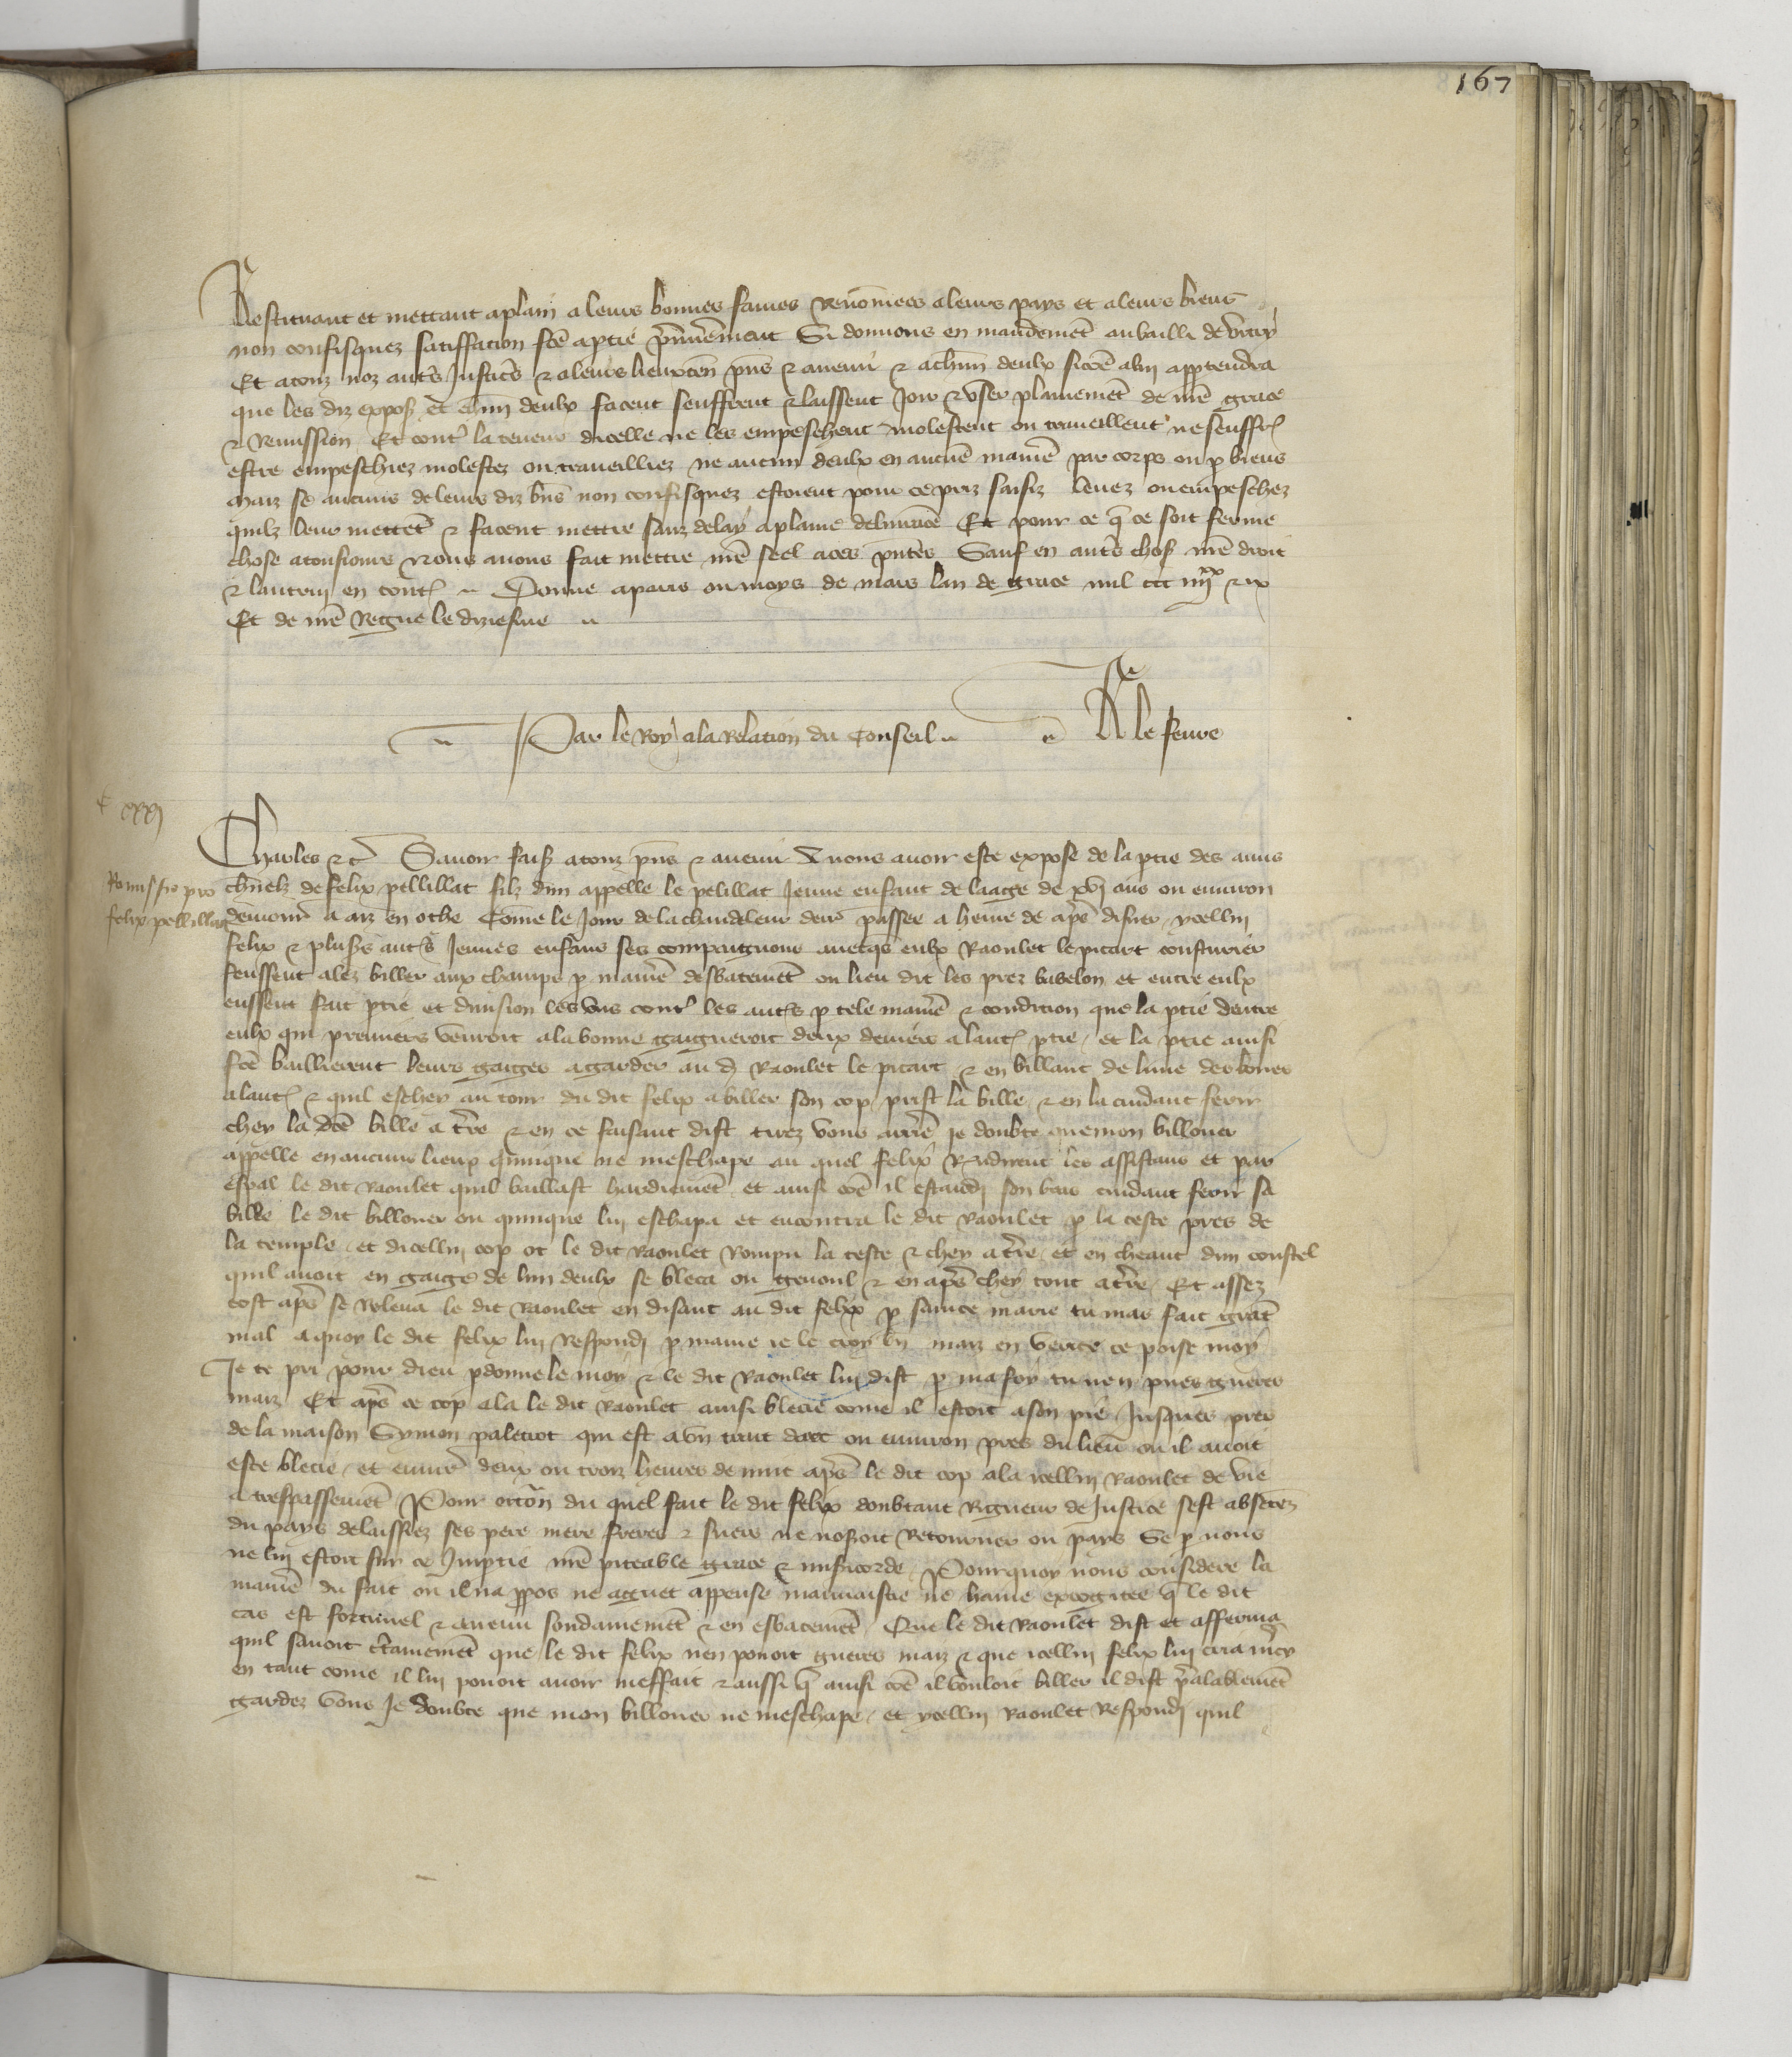 167
Restituant et mettant a plain a leurs bonnes fames renommees a leurs pays et a leurs biens
non confisquez satiffacion fcē a ptie Si donnons en mandemēt au bailli de vitry
Et a touz noz autēs Justicēs & a leurs lieuxtēn pn̄s & avenir & a chun̄ deulx si cōe a lui apptendra
que les diz expoz et chun̄ deulx facent seuffrent & laissent Joir & user plainemēt de nr̄e grace
& Remission Et contr̄ la teneur dicelle ne les empeschent molestent ou traveillent ne seuffrēt
estre empeschiez molestez ou traveilliez ne aucun deulx en aucūe manie̅ par corps ou p biens
mais se aucuns de leurs diz bn̄s non confisquez estoient pour ce priz saisiz levez ou empeschez
quilz leur mettēt & facent mettre sanz delay a plaine delivrāce Et pour ce q̄ ce soit ferme
chose a tousiours Nous avons fait mettre nr̄e seel a ces pn̄tes Sauf en autēs choses nr̄e droit
& lautruy en toutēs Donne a paris ou moys de mars lan de grace mil ccc iiiixx & ix
Et de nr̄e Regne le diziesme
Par le Roy a la Relacion du Conseil
Le fevre
C xxxj
Charles &c Savoir faisons a touz pn̄s & avenir A nous avoir este expose de la ptie des amis
Remissio pro
felix pellillat
charnelz de felix pellillat filz dun appelle le pelillat Jeune enfant de laage de xvj ans ou environ
demourant a aiz en othe Cōme le Jour de la chandeleur derr̄ passee a heure de ap̄s disner ycellui
felix & plus̄s autēs Jeunes enfans ses compaignons avecqs eulx Raoulet le picart cousturier
feussent alez biller aux champs p manie̅ desbatemēt ou lieu dit les prez babelon et entre eulx
eussent fait ptie et division les uns contr̄ les autēs p tele manie̅ & condicion que la ptie dentre
eulx qui premiers venroit a la bonne gaigneroit deux deniers a lautr̄ ptie et la ptie ainsi
fcē baillierent leurs gaiges a garder au dit Raoulet le picart & en billant de lune des bones
a lautr̄ & quil escheu au tour du dit felix a biller son cop prist la bille & en la cuidant ferir
chey la dcē bille a t̄re & en ce faisant dist tirez vous arrie̅ je doubte que mon billouer
appelle en aucuns lieux quinque ne meschape au quel felix Rendirent les assistans et par
espal le dit Raoulet quil baillast hardiemēt et ainsi cōe il estandi son bras cuidant ferir sa
bille le dit billouer ou quinque lui eschapa et encontra le dit Raoulet p la teste pres de
la temple et dicellui cop ot le dit Raoulet Rompu la teste & chey a t̄re et en cheant dun coustel
quil avoit en gaige de lun deulx se bleca ou genoul & en ap̄s chey tout a t̄re Et assez
tost ap̄s se Releva le dit Raoulet en disant au dit felix p saincte marie tu mas fait grāt
mal a quoy le dit felix lui Respondi p mame ie le croy bn̄ mais en verite ce poise moy
Je te pri pour dieu pdonne le moy & le dit Raoulet lui dist p ma foy tu nen pues gueres
mais Et ap̄s ce cop ala le dit Raoulet ainsi blecie come il estoit a son pie Jusques pres
de la maison Symon paletrot qui est a un trait darc ou environ pres du lieu ou il avoit
este blecie et environ deux ou trois heures de nuit ap̄s le dit cop ala icellui Raoulet de vie
a trespassemēt Pour occōn du quel fait le dit felix doubtant Rigueur de Justice sest absētez
du pays delaissiez ses pere mere freres & suers ne noseroit Retourner ou pays Se p nous
ne lui estoit sur ce Imptie nr̄e piteable grace & misericorde Pourquoy nous considere la
manie̅ du fait ou il na ppos ne aguet appense mauvaistie ne haine excogitee q̄ le dit
cas est fortunel & avenu soudainemēt & en esbatemēt Que le dit Raoulet dist et afferma
quil savoit c̄tainemēt que le dit felix nen povoit gueres mais & que icellui felix lui cria m̄cy
en tant come il lui povoit avoir meffait & aussi q̄ ainsi cōe il vouloit biller il dist p̄alablemēt
gardez vous Je doubte que mon billouer ne meschape et ycellui Raoulet Respondi quil